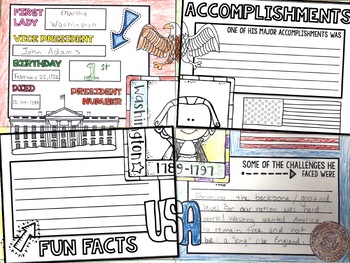 FIRST
LADY
Martha
Washington
VICE PRESIDENT
John Adams
BIRTHDAY
February 22, 1732
1st
DIED
12-14-1799
PRESIDENT
NUMBER
ACCOMPLISHMENTS
ONE OF HIS MAJOR ACCOMPLISHMENTS WAS
Washington
1789-1797
USA
FUN FACTS
SOME OF THE CHALLENGES HE
FACED WERE
Forming the backbone / ground
level for our nation was hard
work! Washington wanted America
to remain free and not
be a "king" like England.